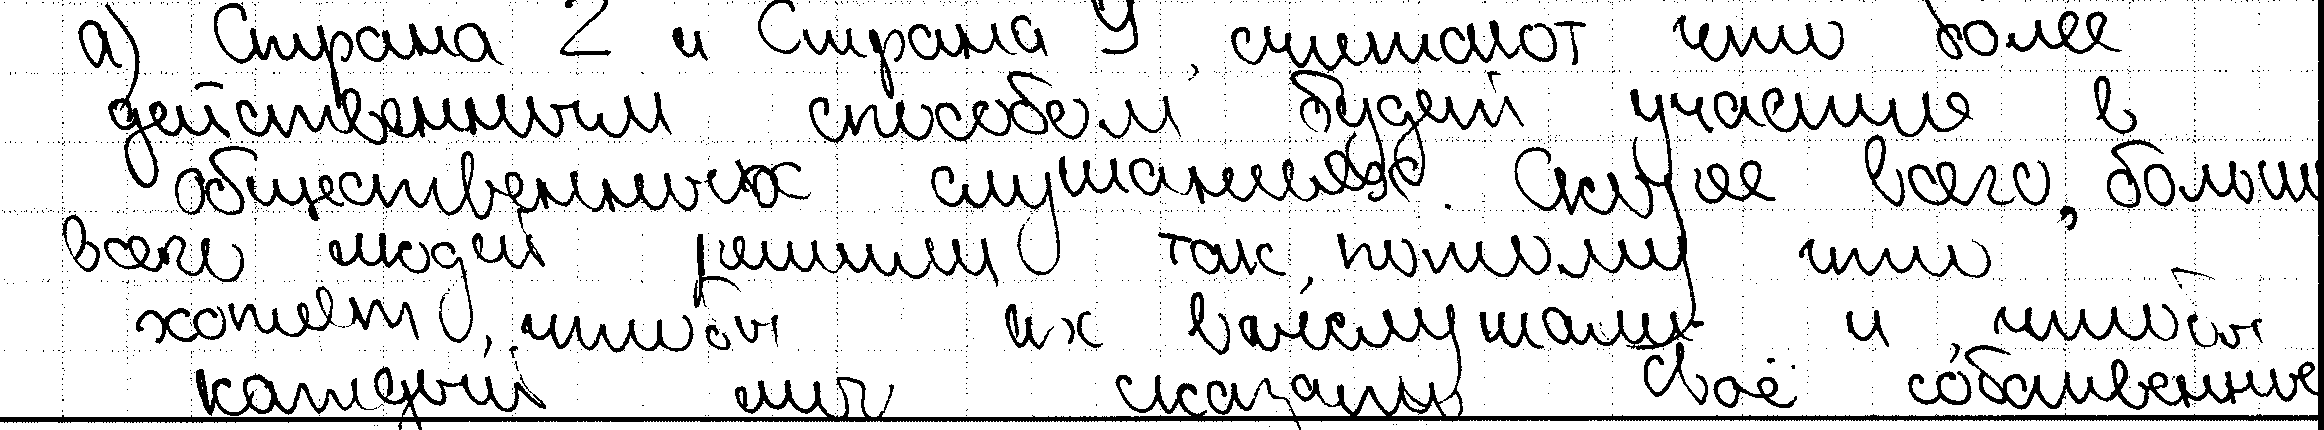 а) Страна Z и Страна У, считают что более
действенным способом будет участие в
общественных слушаниях. Скорее всего, больше
всего людей решили так, потому что
хотят, чтобы их выслушали и, чтобы
каждый мог сказать своё собственное